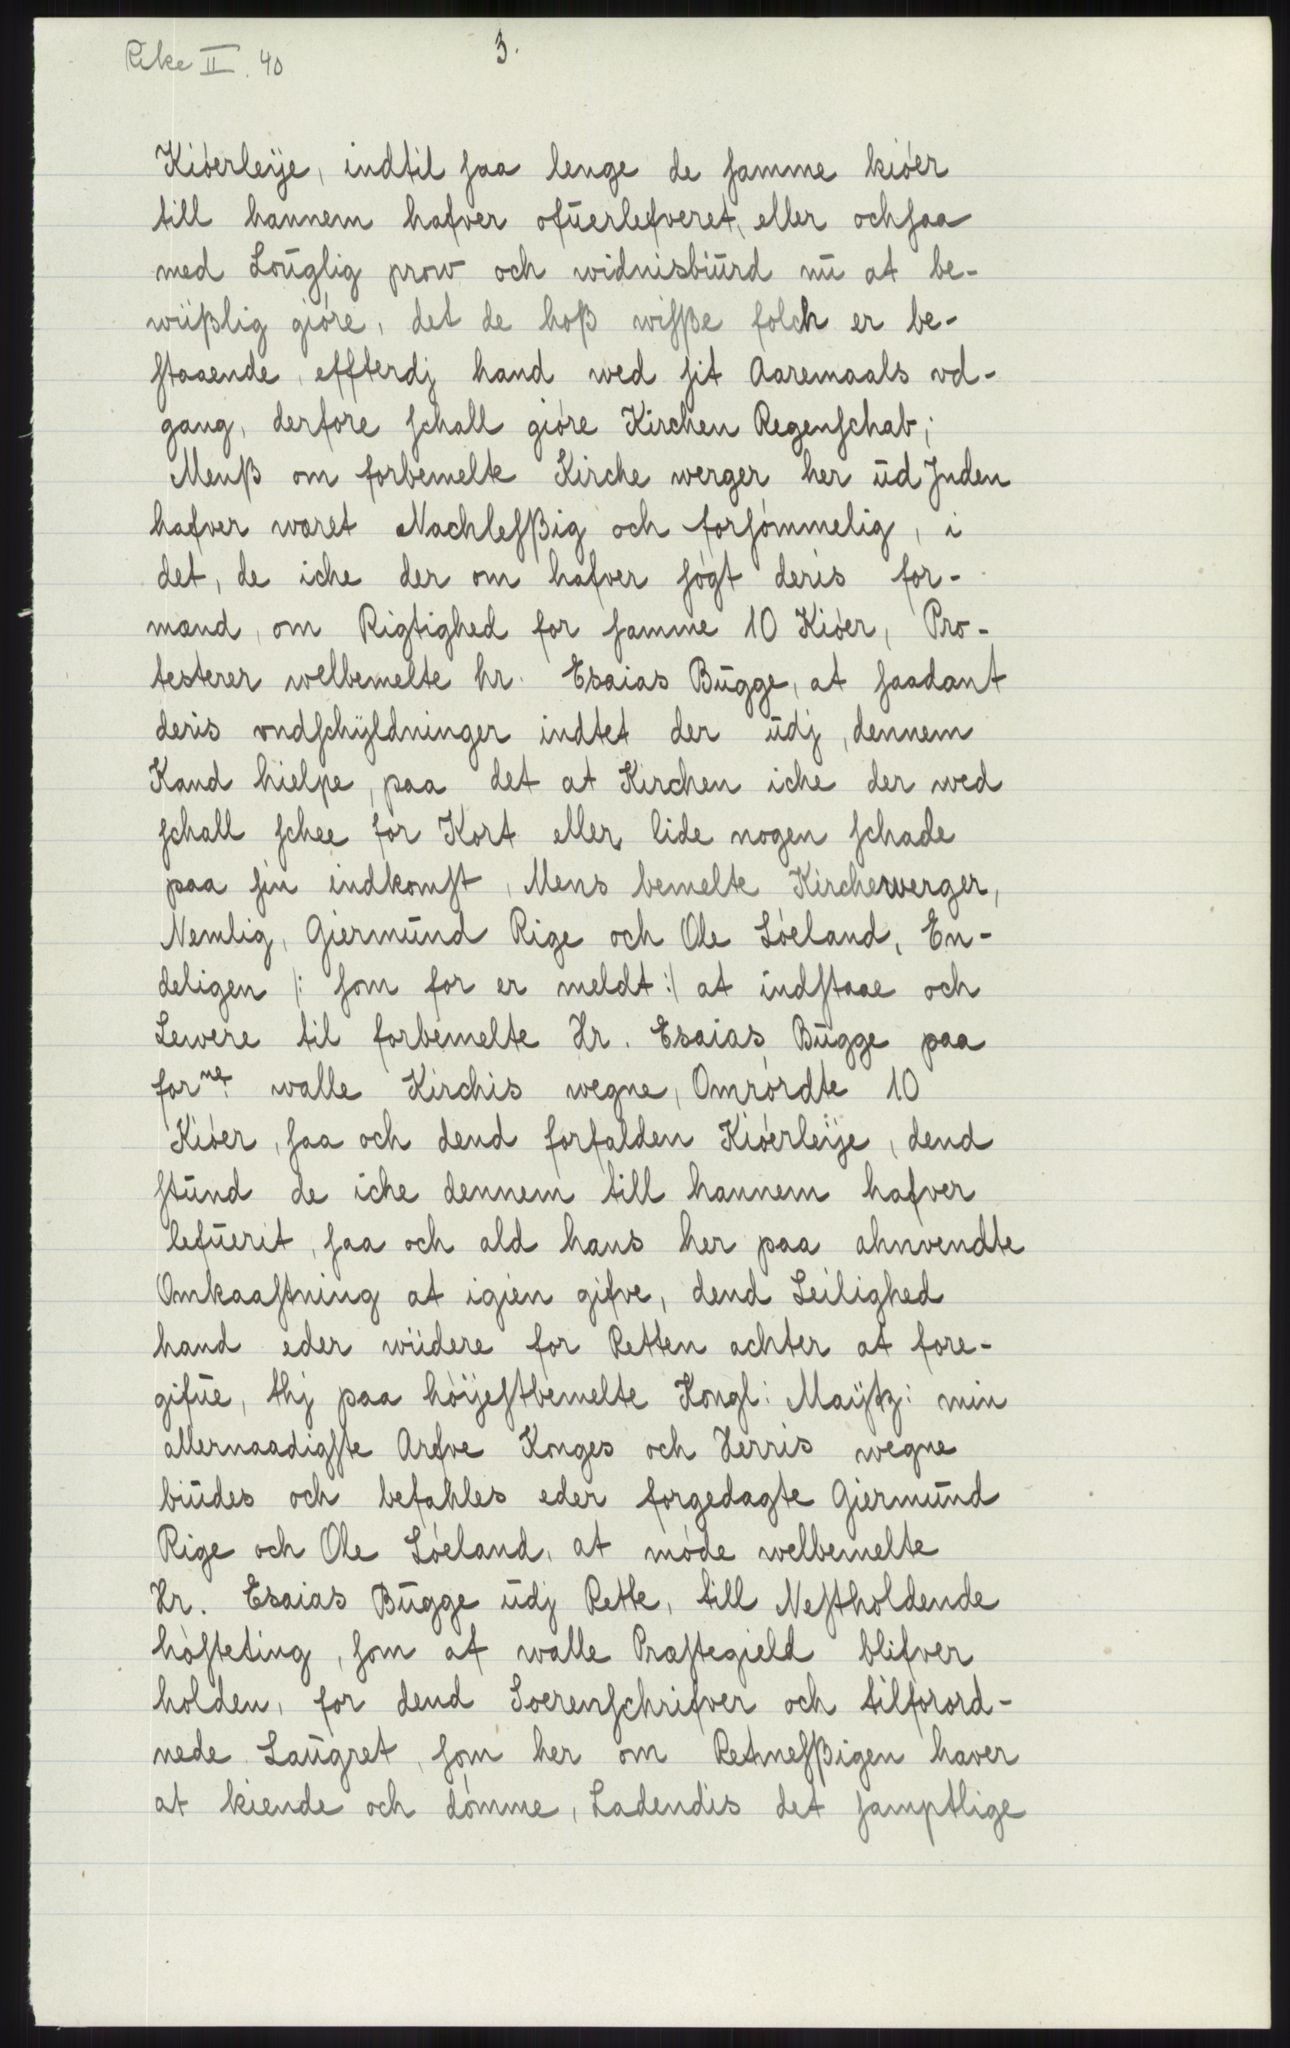 Rike II. 40
3.
Kiöerleÿe, indtil saa lenge de samme kiöer
till hannem hafver ofuerlefveret, eller ochsaa
med Louglig prow och widnisbiurd nu at be-
wüßlig giöre, det de hoß wisße folch er be-
staaende, effterdj hand wed sit Aaremaals vd-
gang, derfore schall giöre Kirchen Regenschab;
Menß om forbemelte Kirche werger her ud Inden
hafver wæret Nachlesßig och forsömmelig, i
det, de iche der om hafver sögt deris for-
mænd, om Rigtighed for samme 10 Kiöer, Pro-
testerer welbemelte hr. Esaias Bugge, at saadant
deris vndschÿldninger indtet der udj, dennem
Kand hielpe, paa det at Kirchen iche der wed
schall schee for Kort eller lide nogen schade
paa sin indkomst, Mens bemelte Kircherwerger,
Nemlig, Giermund Rige och Ole Löeland, En-
deligen /: som for er meldt :/ at indstaae och
Lewere til forbemelte Hr. Esaias Bugge paa
forne. walle Kirchis wegne, Omrördte 10
Kiöer, saa och dend forfalden Kiöerleÿe, dend
stund de iche dennem till hannem hafver
lefuerit, saa och ald hans her paa ahnvendte
Omkaastning at igien gifve, dend Leilighed
hand eder wüdere for Retten achter at fore-
gifue, thj paa höÿestbemelte Kongl: Maÿtz: min
allernaadigste Arfve Konges och Herris wegne
biudes och befahles eder forgedagte Giermund
Rige och Ole Löeland, at möde welbemelte
Hr. Esaias Bugge udj Rette, till Nestholdende
hösteting, som af walle Præstegield blifver
holden, for dend Soerenschrifver och tilforord-
nede Laugret, som her om Retmesßigen haver
at kiende och dömme, Ladendis det samptlige